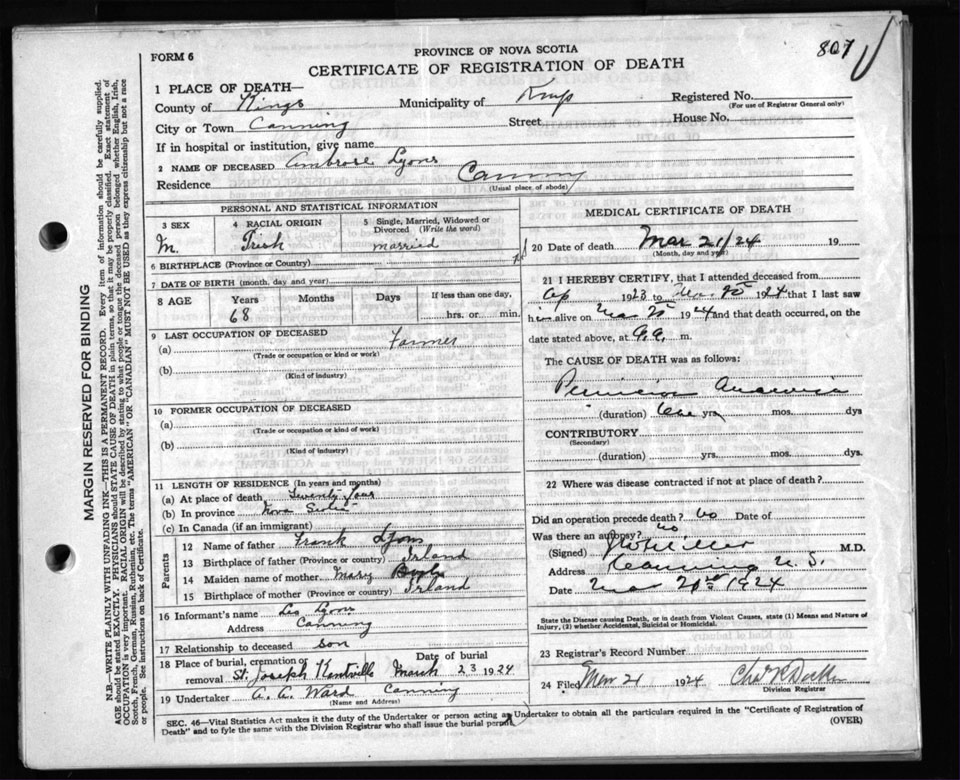 807
FORM 6
PROVINCE OF NOVA SCOTIA
CERTIFICATE OF REGISTRATION OF DEATH
1 PLACE OF DEATH—
County of Kings Municipality of Kings Registered No.
(For use of Registrar General only)
City or Town Canning Street House No.
If in hospital or institution, give name
2 NAME OF DECEASED Ambrose Lyons
Residence Canning
(Usual place of abode)
PERSONAL AND STATISTICAL INFORMATION
3 SEX 4 RACIAL ORIGIN 5 Single, Married, Widowed or Divorced (Write the word)
M. Irish married
6 BIRTHPLACE (Province or Country)
7 DATE OF BIRTH (month, day and year)
8 AGE Years Months Days If less than one day,
68 hrs. or min.
9 LAST OCCUPATION OF DECEASED
(a) Farmer
(Trade or occupation or kind or work)
(b)
(Kind of industry)
10 FORMER OCCUPATION OF DECEASED
(a)
(Trade or occupation or kind of work)
(b)
(Kind of industry)
11 LENGTH OF RESIDENCE (In years and months)
(a) At place of death Twenty four
(b) In province Nova Scotia
(c) In Canada (if an immigrant)
Parents
12 Name of father Frank Lyons
13 Birthplace of father (Province or country) Irland
14 Maiden name of mother Mary
15 Birthplace of mother (Province or country) Irland
16 Informant's name Leo Lyons
Address Canning
17 Relationship to deceased son
18 Place of burial, cremation or removal St. Joseph Kentville Date of burial March 23 1924
19 Undertaker A. A. Ward Canning
(Name and Address)
MEDICAL CERTIFICATE OF DEATH
20 Date of death Mar 21/24 19
(Month, day and year)
21 I HEREBY CERTIFY, that I attended deceased from
Ap 1923 to Mar 20 1924 that I last saw
him alive on Mar 20 1924 and that death occurred, on the
date stated above, at m.
The CAUSE OF DEATH was as follows:
Pernicious Anaemia
(duration) One yrs. mos. dys
CONTRIBUTORY
(Secondary)
(duration) yrs. mos. dys.
22 Where was disease contracted if not at place of death?
Did an operation precede death? no Date of
Was there an autopsy? no
(Signed) M.D.
Address Canning N. S.
Date Mar 1924
State the Disease causing Death, or in death from Violent Causes, state (1) Means and Nature of
Injury, (2) whether Accidental, Suicidal or Homicidal.
23 Registrar's Record Number
24 Filed Mar 21 1924
Division Registrar
SEC. 46—Vital Statistics Act makes it the duty of the Undertaker or person acting as Undertaker to obtain all the particulars required in the "Certificate of Registration of
Death" and to fyle the same with the Division Registrar who shall issue the burial permit. (OVER)
MARGIN RESERVED FOR BINDING
N.B.—WRITE PLAINLY WITH UNFADING INK—THIS IS A PERMANENT RECORD. Every item of information should be carefully supplied.
AGE should be stated EXACTLY. PHYSICIANS should STATE CAUSE OF DEATH in plain terms, so that it may be properly classified. Exact statement of
OCCUPATION is very important. RACIAL ORIGIN will be described by stating to what people or tongue the deceased person belonged whether English, Irish,
Scotch, French, German, Russian, Ruthenian, etc. The terms "AMERICAN" OR "CANADIAN" MUST NOT BE USED as they express citizenship but not a race
or people. See instructions on back of Certificate.